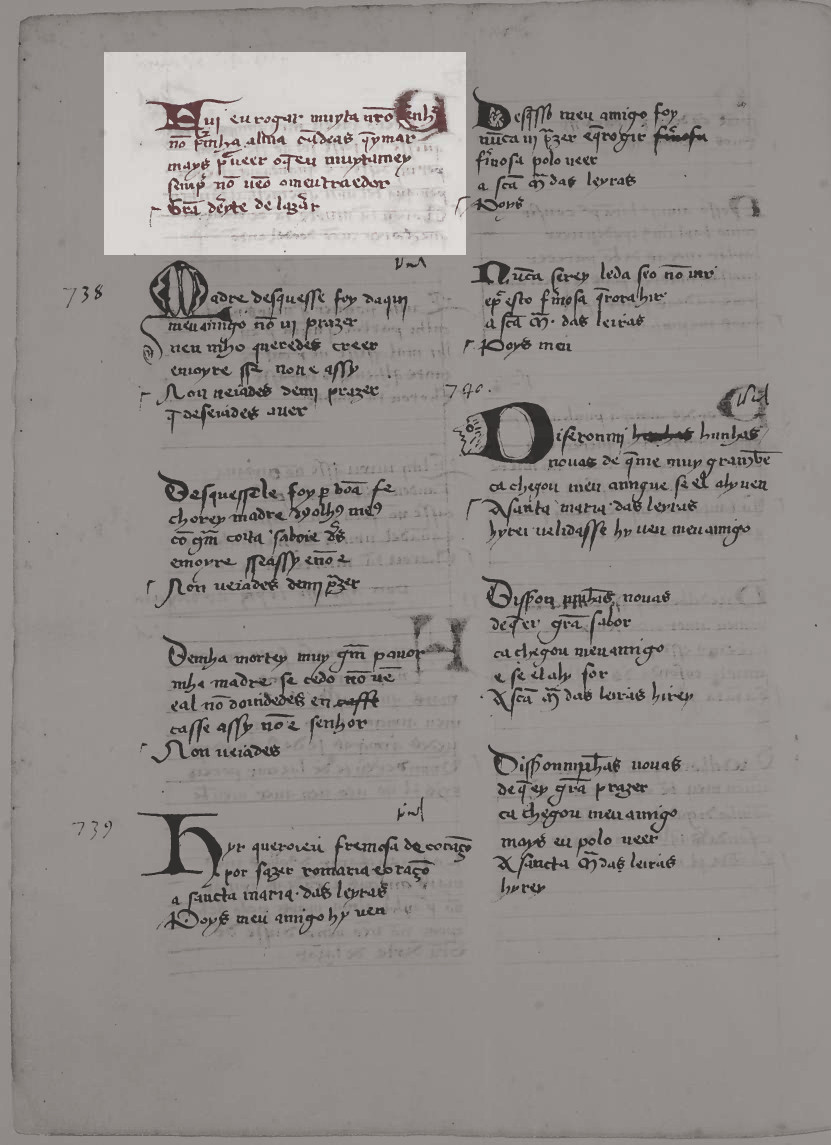 Aqui eu rogar muyta nr̃o
nõ mĩha alma cãdeas q̃ymar
mays p̃ ueer o q̃eu muytamey
semp̃ nõ ueo omeu traedor
Grã dr̃eyte de lazar
738
Madre desquesse foy daqui
meu amigo nõ ui prazer
neu mho queredes creer
emoyre sse non e assy
Non ueiades demi prazer
q̃ deseiades auer
Desquessele foy p̃ bõa fe
chorey madre dyolhꝯ meꝯ
cõ gr̃m coita saboie ds̃
emoyre sseassy enõ e
Non ueiades demi p̃zer
Demha mortey muy gr̃m pauor
mha madre se cedo nõ uẽ
eal nõ douidedes en
casse assy nõ e senhor
Non ueiades
739
Hyr queroieu fremosa de coraçõ
por fazer romaria e oraçõ
a sancta maria das leyras
Poys meu amigo hy uen
Desq̃sso meu amigo foy
nũca ui p̃zer e q̃rogir
fr̃mosa polo ueer
a scã m̃ das leyras
Poys
Nũca serey leda seo nõ uir
ep̃ esto fr̃mosa q̃rora hir
a scã m̃ das leiras
Poys meu
740.
Diseronmi hunhas
nouas de q̃me muy gram bẽ
ca chegou meu amigue se el aly uen
A santa maria das leyras
hyrei uelidasse hy uen meu amigo
nouas
de q̃er grã sabor
ca chegou meu amigo
e se el aly for
A scã m̃ das leiras hirey
nouas
de q̃ ey grã prazer
ca chegou meu amigo
mays eu polo ueer
A sancta m̃ das leiras
hyrey